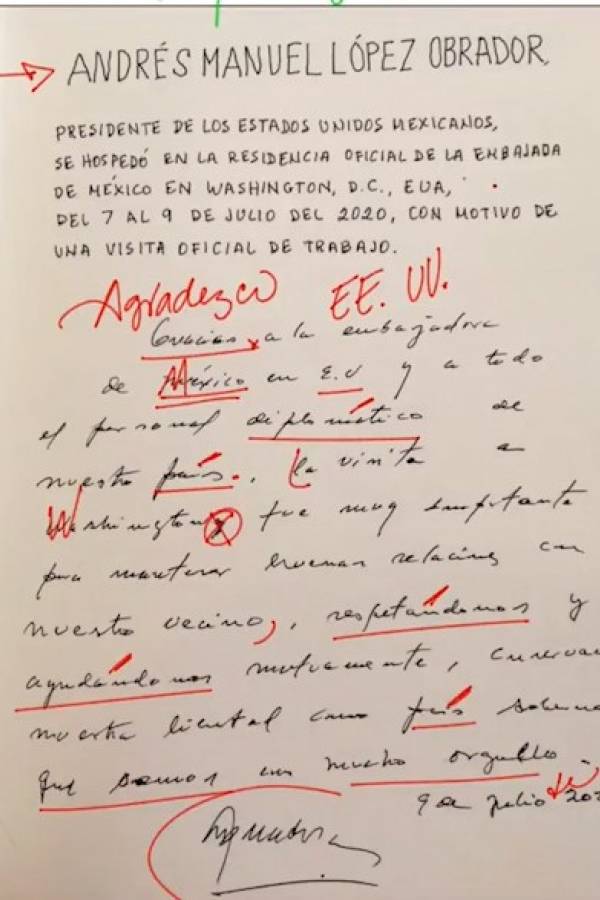 ANDRÉS MANUEL LÓPEZ OBRADOR,
PRESIDENTE DE LOS ESTADOS UNIDOS MEXICANOS,
SE HOSPEDÓ EN LA RESIDENCIA OFICIAL DE LA EMBAJADA
DE MÉXICO EN WASHINGTON, D.C., EUA,
DEL 7 AL 9 DE JULIO DEL 2020, CON MOTIVO DE
UNA VISITA OFICIAL DE TRABAJO.
Agradezco EE. UU.
Gracias a la embajadora
de México en E.U y a todo
el personal diplomático de
nuestro país. la visita a
Washington fue muy importante
para mantener buenas relaciones con
nuestro vecino, respetándonos y
ayudándonos mutuamente,
nuestra como país
que somos con mucho orgullo.
9 de julio de